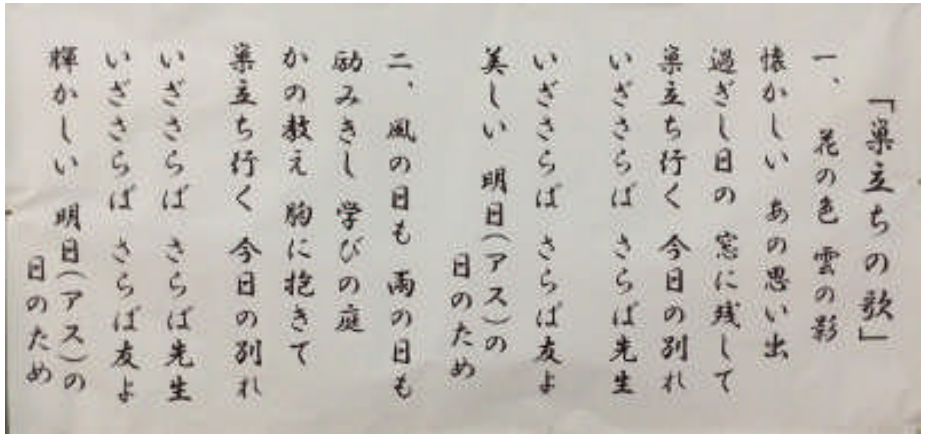 「巣立ちの歌」
一、 花の色 雲の影
懐かしい あの思い出
過ぎし日の 窓に残して
巣立ち行く 今日の別れ
いざさらば さらば先生
いざさらば さらば友よ
美しい 明日(アス)の
日のため
二、 風の日も 雨の日も
励みきし 学びの庭
かの教え 胸に抱きて
巣立ち行く 今日の別れ
いざさらば さらば先生
いざさらば さらば友よ
輝かしい 明日(アス)の
日のため